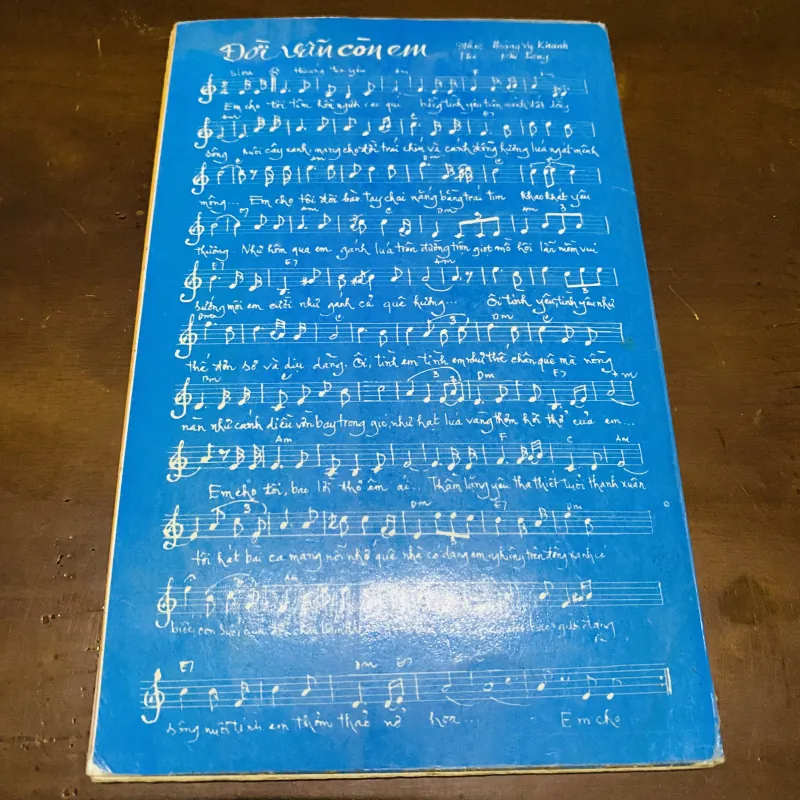 Đời vẫn còn em
Nhạc Hoàng Vy Khanh
Thơ
Slow thương yêu Am
Em cho tôi tìm hồn người các qua bằng tình yêu trên mảnh đất
Am C E7
sông nuôi cây xanh, mang cho đời trái chín và cánh đồng hương lúa ngát mênh
C Am Dm E C
mông... Em cho tôi đôi bàn tay chai nắng bằng trái tim khao khát yêu
E7 Am C Dm Am
thương Như hôm qua em gánh lúa trên đường trộn giọt mồ hôi lẫn niềm vui
E7 Am
sướng môi em cười như gánh cả quê hương... Ôi tình yêu, tình yêu như
Dm C Dm
thế đơn sơ và dịu dàng. Ôi, tình em tình em như thế chân quê mà nồng
Dm C Dm E7 Am
nàn như cánh diều vờn bay trong gió, như hạt lúa vàng thơm hơi thở của em...
Am F C Am
Em cho tôi, bao lời thơ êm ái... Thầm lặng yêu tha thiết tuổi thanh xuân
Dm E7 Dm
tôi hát bài ca mang nỗi nhớ quê nhà có dáng em nghiêng trên đồng xanh
Am
biếc, con suối qua
E7 Dm E7
sông nuôi tình em thơm thảo nở hoa... Em cho